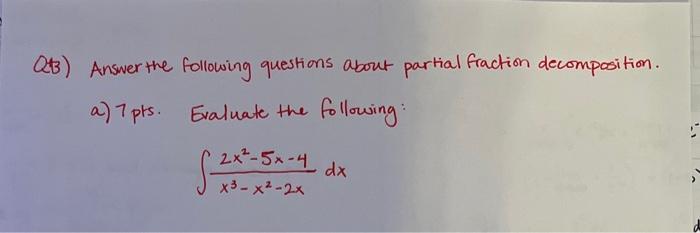 Q#3) Answer the following questions about partial fraction decomposition.
a) 7 pts. Evaluate the following:
∫ (2x² - 5x - 4)/(x³ - x² - 2x) dx